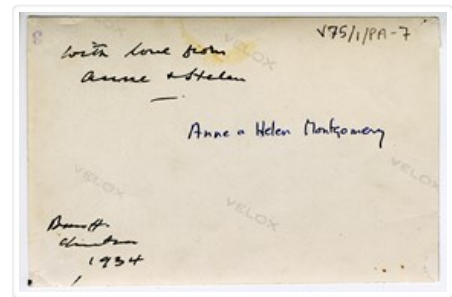 V75/1/PA-7
with love from
Anne & Helen
Anne & Helen Montgomery
VELOX
VELOX
VELOX
VELOX
Banff
Christmas
1934